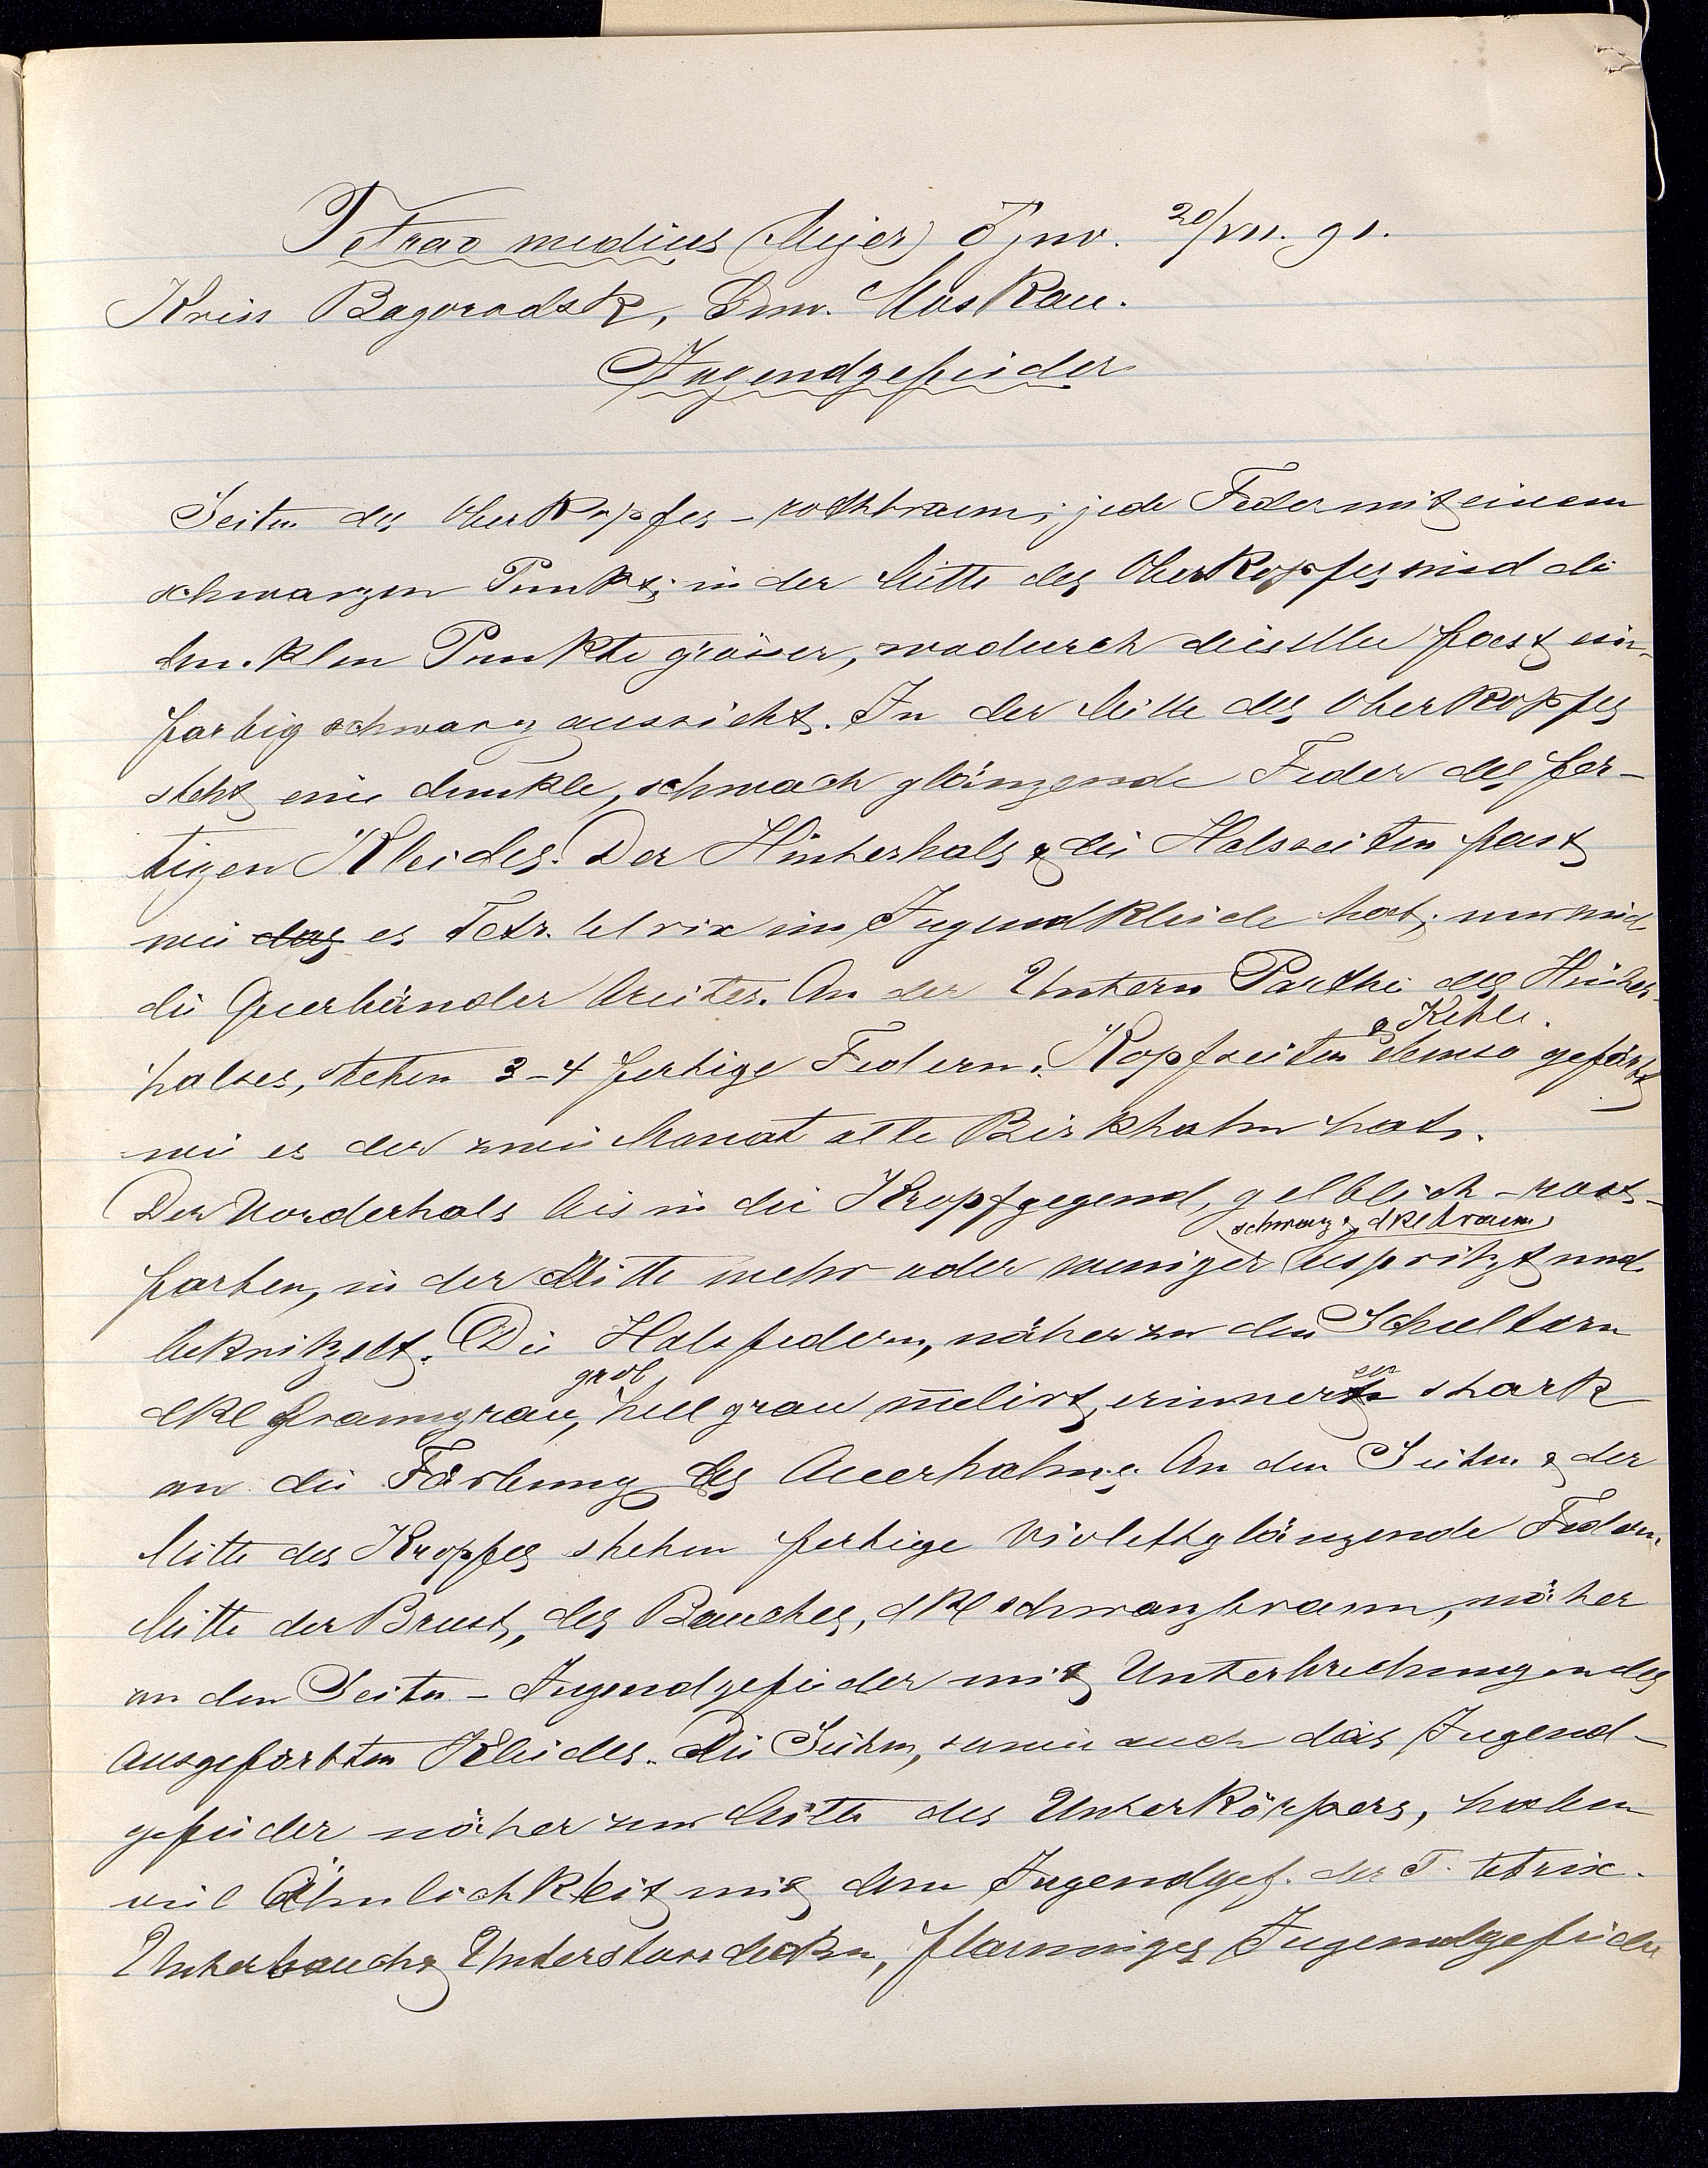 Tetrao medius (Mejer) ♂ juv. 20/VII. 91.
Kreis Bagorodsk, Gouv. Moskau.
Jugendgefieder
Seiten des Oberkopfes – rothbraun; jede Feder mit einem
schwarzen Punkt; in der Mitte des Oberkopfes sind die
dunklen Punkte grösser, wodurch dieselbe fast ein-
farbig schwarz aussieht. In der Mitte des Oberkopfes
steht eine dunkle, schwach glänzende Feder des fer-
tigen Kleides. Der Hinterhals & die Halsseiten fast
wie das es Tetr. tetrix im Jugendkleide hat; nur sind
die Querbänder breiter. An der Untern Parthie des Hinter-
halses, stehen 3–4 fertige Federn. Kopfseiten & Kehle ebenso gefärbt
wie es der zwei Monat alte Birkhahn hat.
Der Vorderhals bis in die Kropfgegend, gelblich-rost-
farben, in der Mitte mehr oder weniger schwarz & dklbraun bespritzt und
bekritzelt. Die Halsfedern, näher zu den Schultern
dkl braungrau, grob hellgrau melirt, erinnern stark
an die Färbung des Auerhahns. An den Seiten & der
Mitte des Kropfes stehen fertige violettglänzende Federn.
Mitte der Brust, des Bauches, dkl schwarzbraun, näher
an den Seiten – Jugendgefieder mit Unterbrechungen des
ausgefärbten Kleides. Die Seiten, sowie auch das Jugend-
gefieder näher zur Mitte des Unterkörpers, haben
viel Ähnlichkeit mit dem Jugendgef. der T. tetrix.
Unterbauch & Unterstossdecken, flaumiges Jugendgefieder